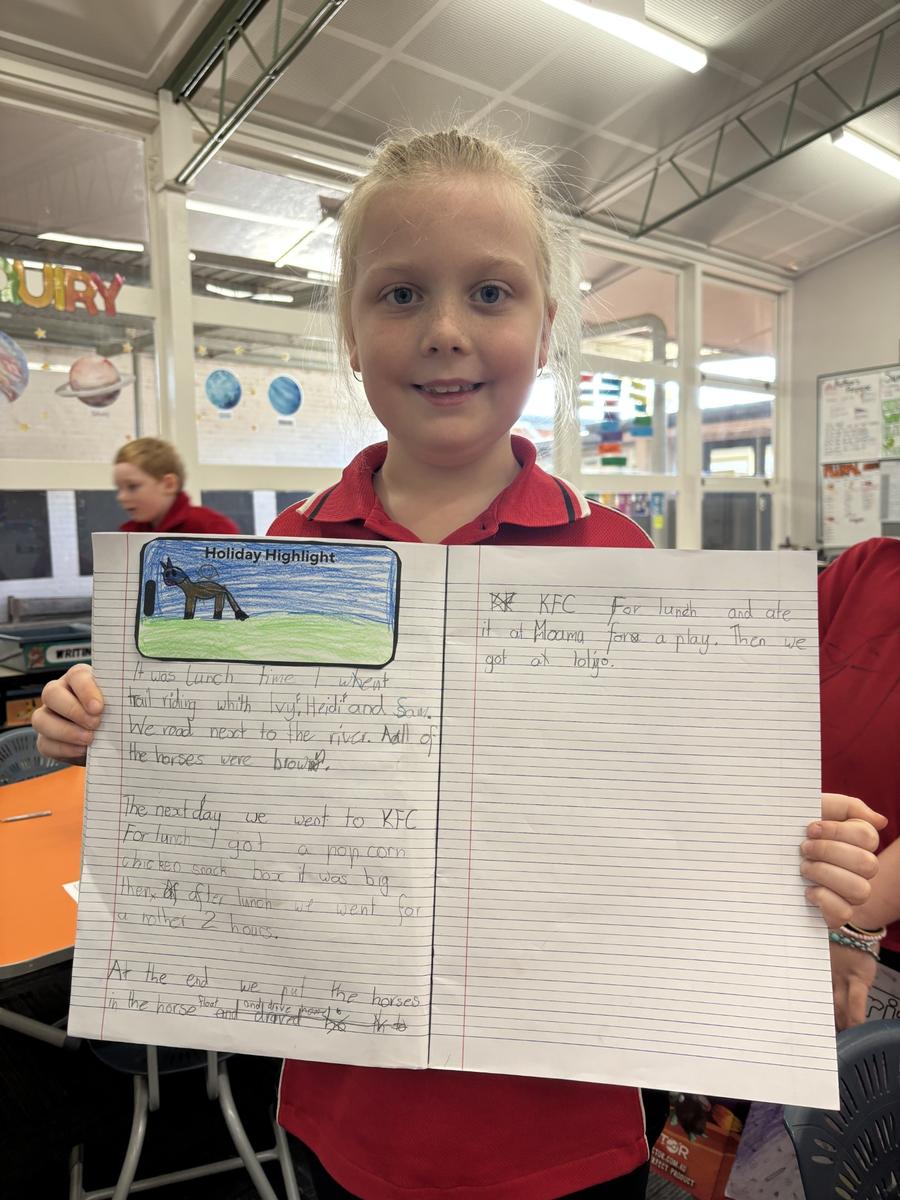 QUIRY
Holiday Highlight
It was lunch time I whent
trail riding whith Ivy, Heidi and Sam.
We road next to the river. All of
the horses were brown.
The next day we went to KFC
For lunch I got a popcorn
chicken snack box it was big
then, after lunch we went for
a nother 2 hours.
At the end we put the horses
in the horse float and drive
and
KFC For lunch and ate
it at Moama for a play. Then we
got at lolijo.
WRITIN